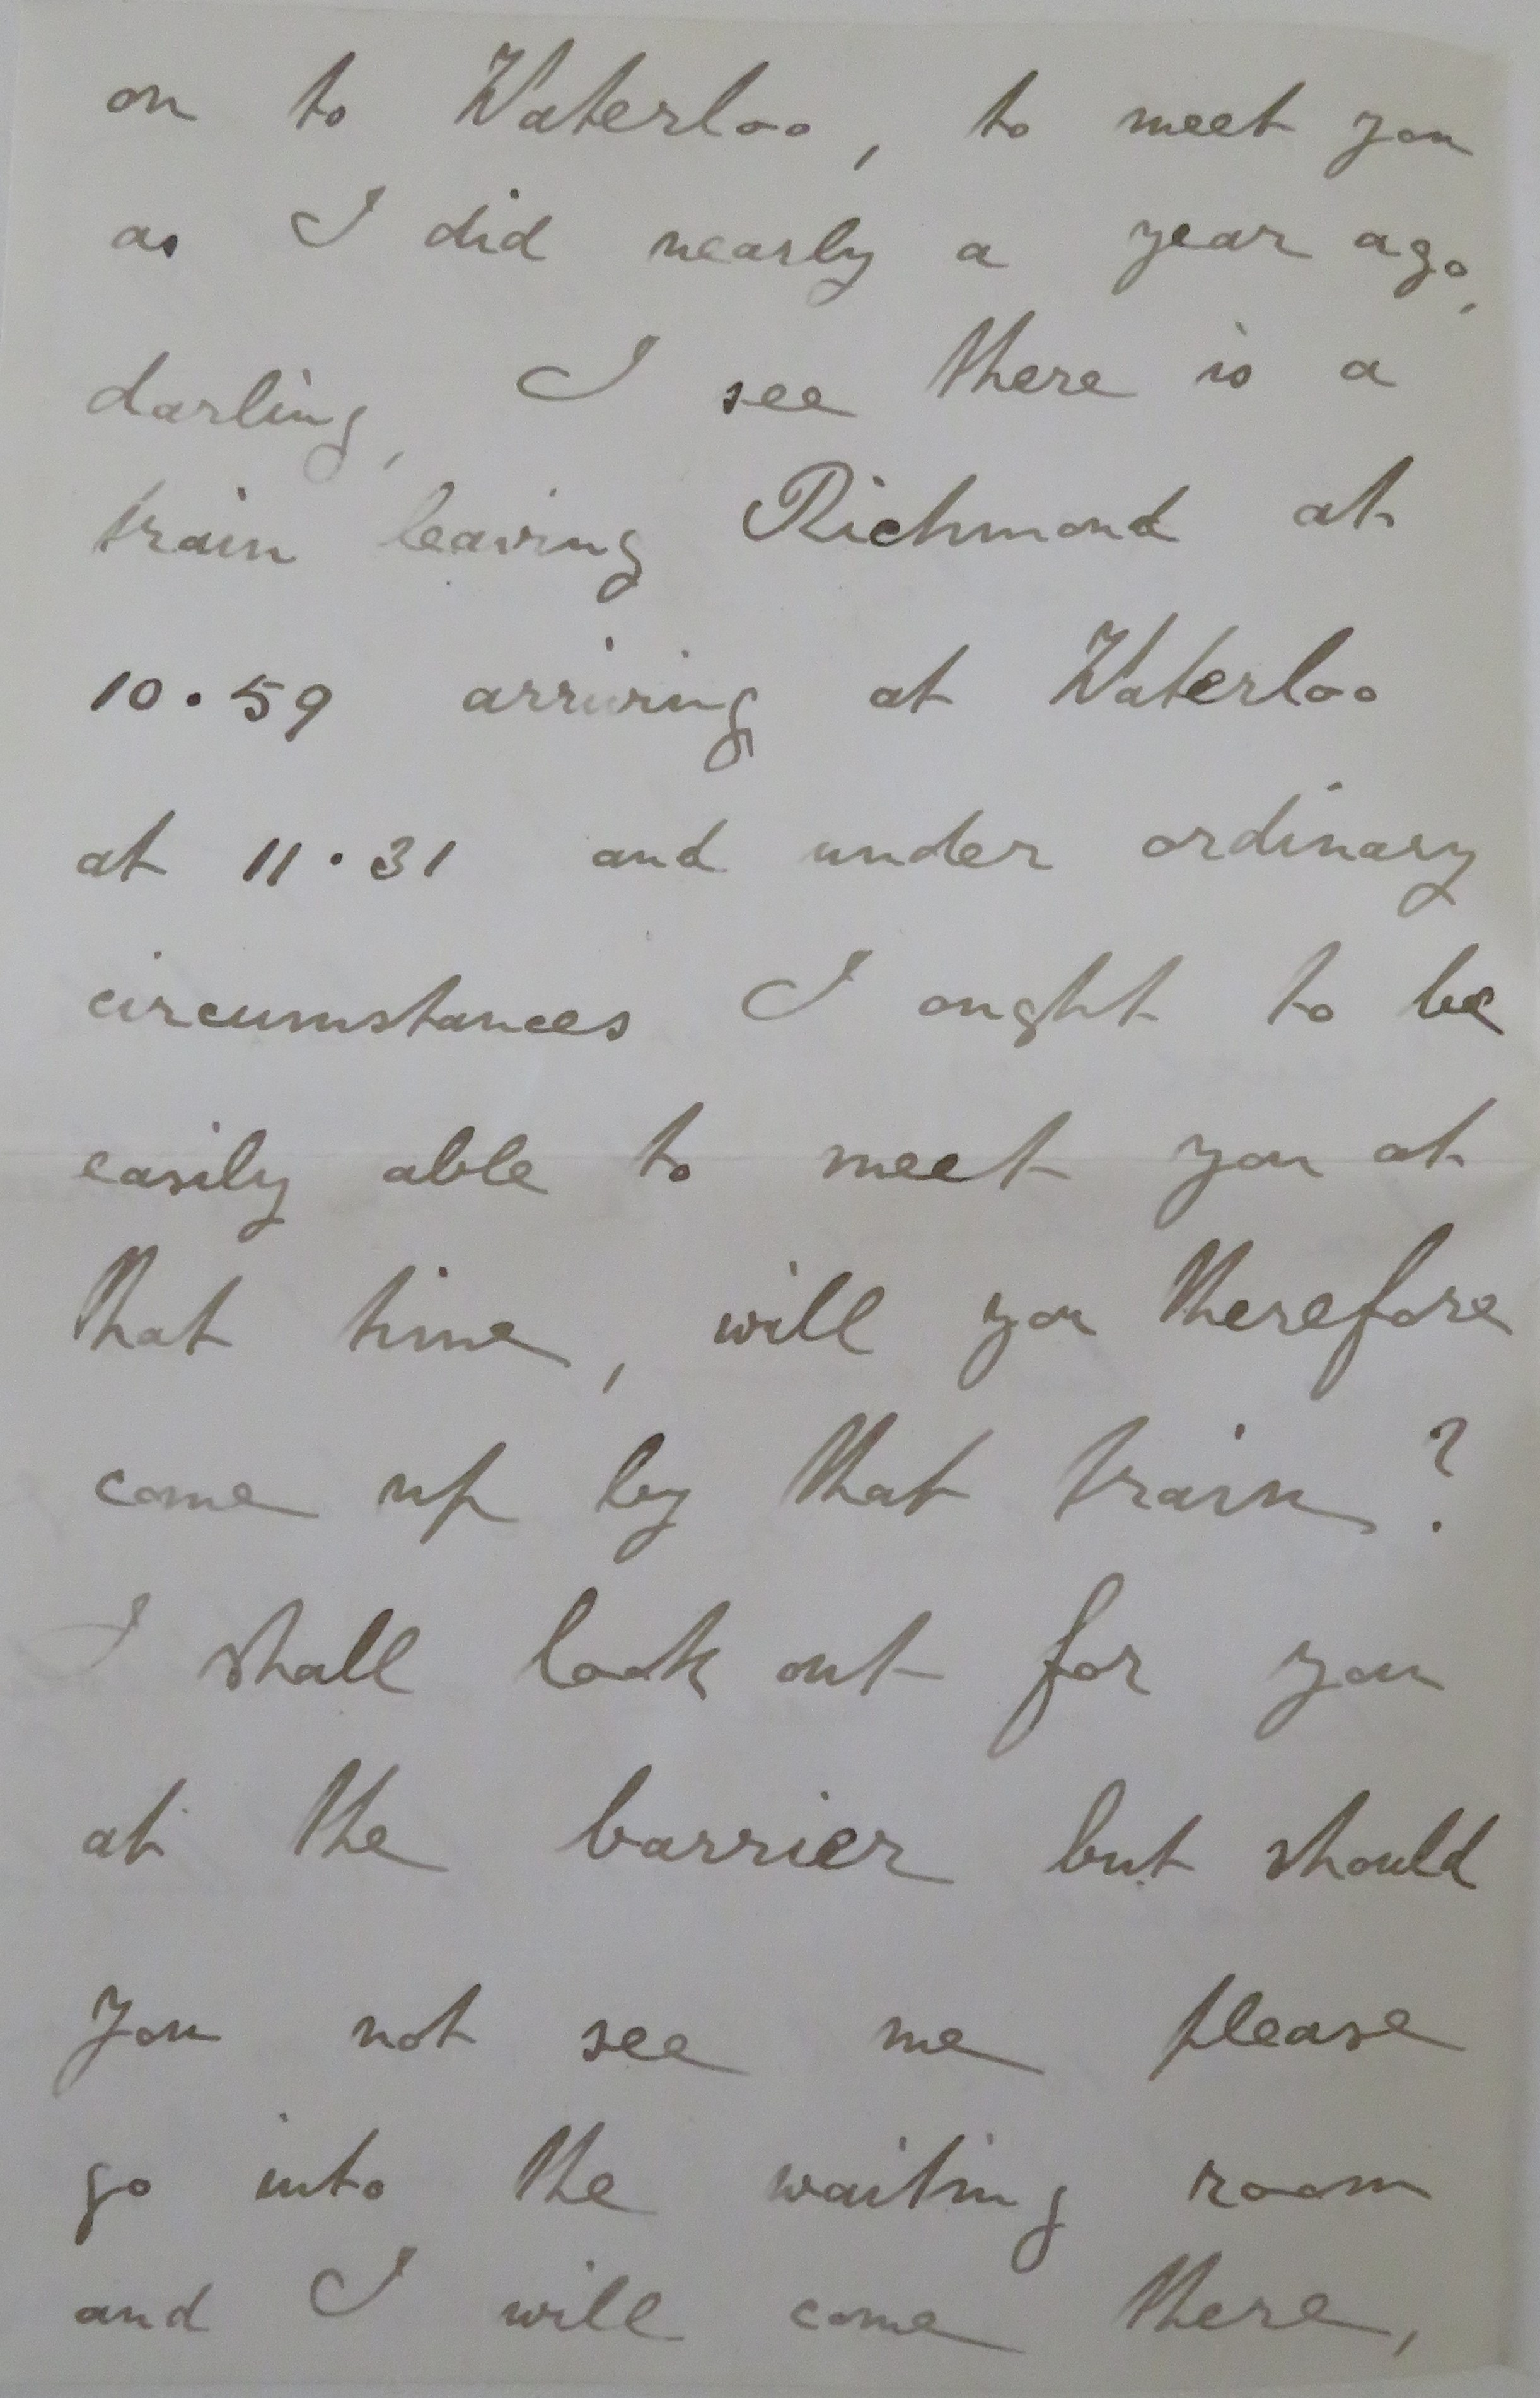 on to Waterloo, to meet you
as I did nearly a year ago,
darling, I see there is a
train leaving Richmond at
10.59 arriving at Waterloo
at 11.31 and under ordinary
circumstances I ought to be
easily able to meet you at
that time, will you therefore
come up by that train?
I shall look out for you
at the barrier but should
you not see me please
go into the waiting room
and I will come there,